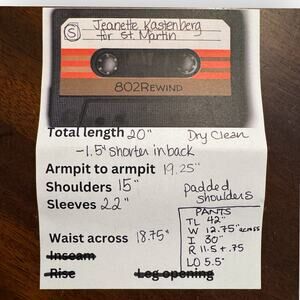 Ⓢ Jeanette Kastenberg
for St. Martin
802REWIND
Total length 20"
Dry Clean
-1.5" shorter in back
Armpit to armpit 19.25"
Shoulders 15"
padded
shoulders
Sleeves 22"
Waist across 18.75"
Inseam
Rise
Leg opening
PANTS
TL 42"
W 12.75" across
I 30"
R 11.5 + .75
LO 5.5"